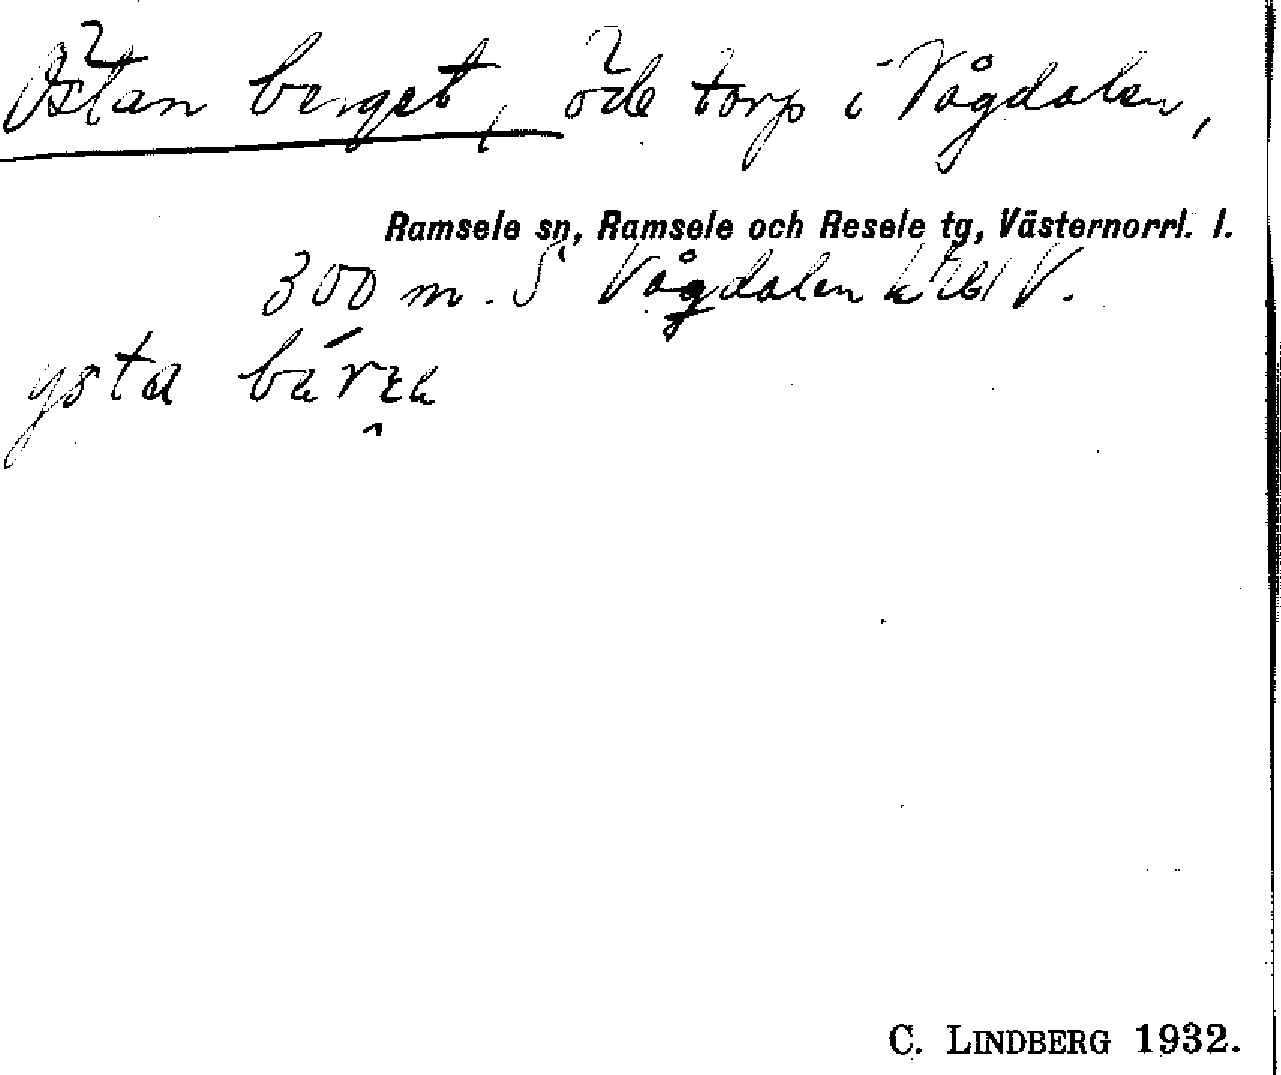 Östan berget, öde torp i Vågdalen,
Ramsele sn, Ramsele och Resele tg, Västernorrl. l.
300 m. S Vågdalen V.
ysta
C. LINDBERG 1932.